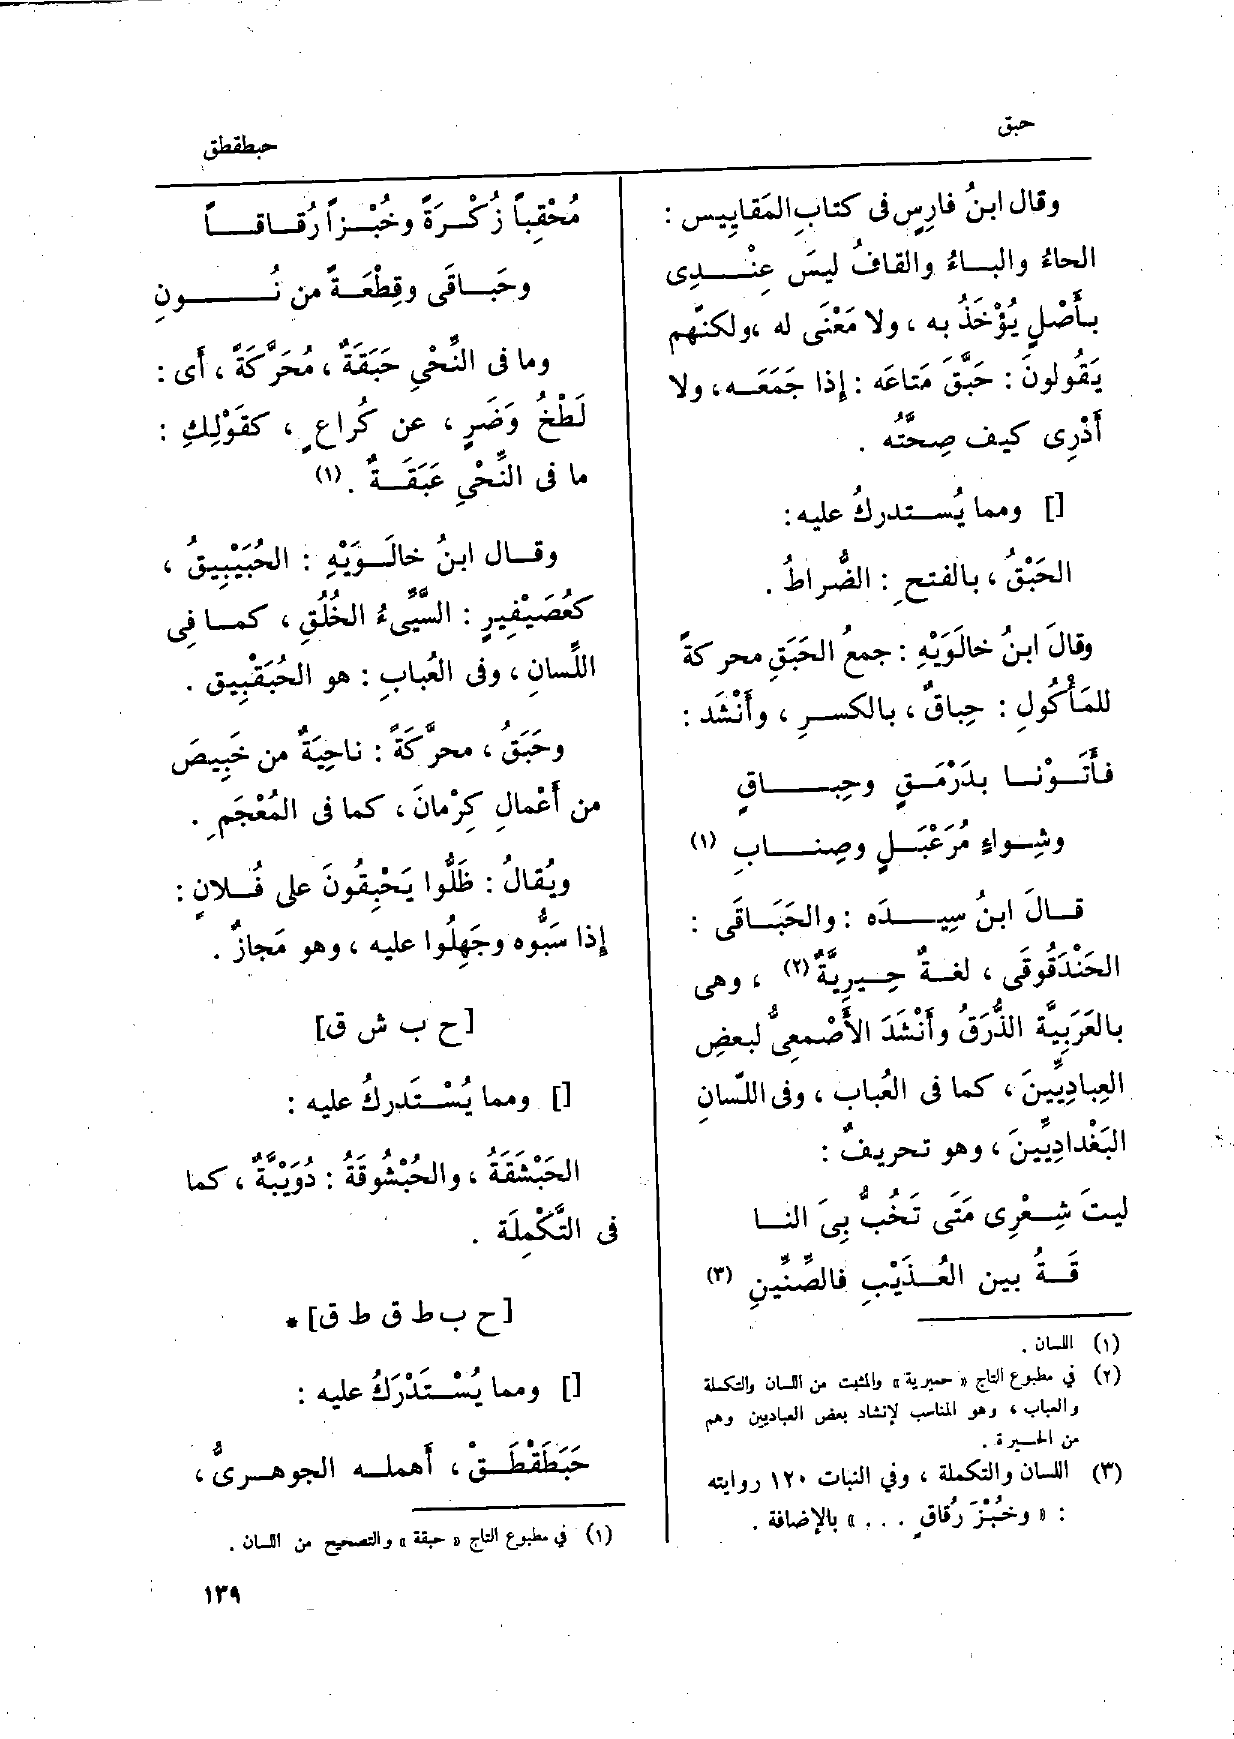 حبق
حبطقطق
وقال ابنُ فارِسٍ فى كتابِ المَقايِيس :
الحاءُ والبـاءُ والقافُ ليسَ عِنْـــدِى
بأَصْلٍ يُؤْخَذُ به ، ولا مَعْنَى له ،ولكنَّهم
يَقُولونَ : حَبَّقَ مَتاعَه : إذا جَمَعَــه، ولا
أَدْرِى كيف صِحَّتُه .
[] ومما يُستدركُ عليه:
الحَبْقُ ، بالفتحِ : الضُّراطُ .
وقالَ ابنُ خالَوَيْهِ : جمعُ الحَبَقِ محركةً
للمَأْكُولِ : حِباقٌ ، بالكسرِ ، وأَنْشَد :
فأَتَـوْنـا بدَرْمَـقٍ وحِبـــاقٍ
وشِـواءٍ مُرَعْبَـلٍ وصِنــابِ (١)
قـالَ ابنُ سِيــدَه : والحَبَـاقَى :
الحَنْدَقُوقَى ، لغـةٌ حِـيرِيَّةٌ (٢) ، وهى
بالعَرَبِيَّة الذُّرَقُ وأَنْشَدَ الأَصْمعىُّ لبعضِ
العِبادِيِّينَ ، كما فى العُباب ، وفى اللّسانِ
البَغْدادِيِّينَ ، وهو تحريفٌ :
ليتَ شِـعْرِى مَتَى تَخُبُّ بِىَ النـا
قَــةُ بين العُـذَيْبِ فالصِّنِّينِ (٣)
(١) اللسان .
(٢) في مطبوع التاج « حميرية » والمثبت من اللسان والتكملة
والعباب ، وهو المناسب لإنشاد بعض العباديين وهم
من الحيرة .
(٣) اللسان والتكملة ، وفي النبات ١٢٠ روايته
: « وخُبْزَ رُقاقٍ . . . » بالإضافة .
مُحْقِباً زُكْـرَةً وخُبْـزاً رُقـاقـاً
وحَبـاقَى وقِطْعَـةً من نُـــونِ
وما فى النِّحْيِ حَبَقَةٌ ، مُحَرَّكَةً ، أَى :
لَطْخُ وَضَرٍ ، عن كُراعٍ ، كقَوْلِكِ :
ما فى النِّحْيِ عَبَقَـةٌ . (١)
وقـال ابنُ خالَـوَيْهِ : الحُبَيْبِيقُ ،
كعُصَيْفِيرٍ : السَّيِّىءُ الخُلُقِ ، كمـا فِى
اللِّسانِ ، وفى العُبابِ : هو الحُبَقْبِيق .
وحَبَقُ ، محرَّكَةً : ناحِيَةٌ من خَبِيصَ
من أَعْمالِ كِرْمانَ ، كما فى المُعْجَمِ .
ويُقالُ : ظَلُّوا يَحْبِقُونَ على فُـلانٍ :
إذا سَبُّوه وجَهِلُوا عليه ، وهو مَجازٌ .
[ح ب ش ق]
[] ومما يُسْـتَدركُ عليه :
الحَبْشَقَةُ ، والحُبْشُوقَةُ : دُوَيْبَّةٌ ، كما
فى التَّكْمِلَة .
[ح ب ط ق ط ق] *
[] ومما يُسْـتَدْرَكُ عليه :
حَبَطَقْطَـقْ ، أَهملـه الجوهـرىُّ ،
(١) في مطبوع التاج « حبقة » والتصحيح من اللسان .
١٣٩